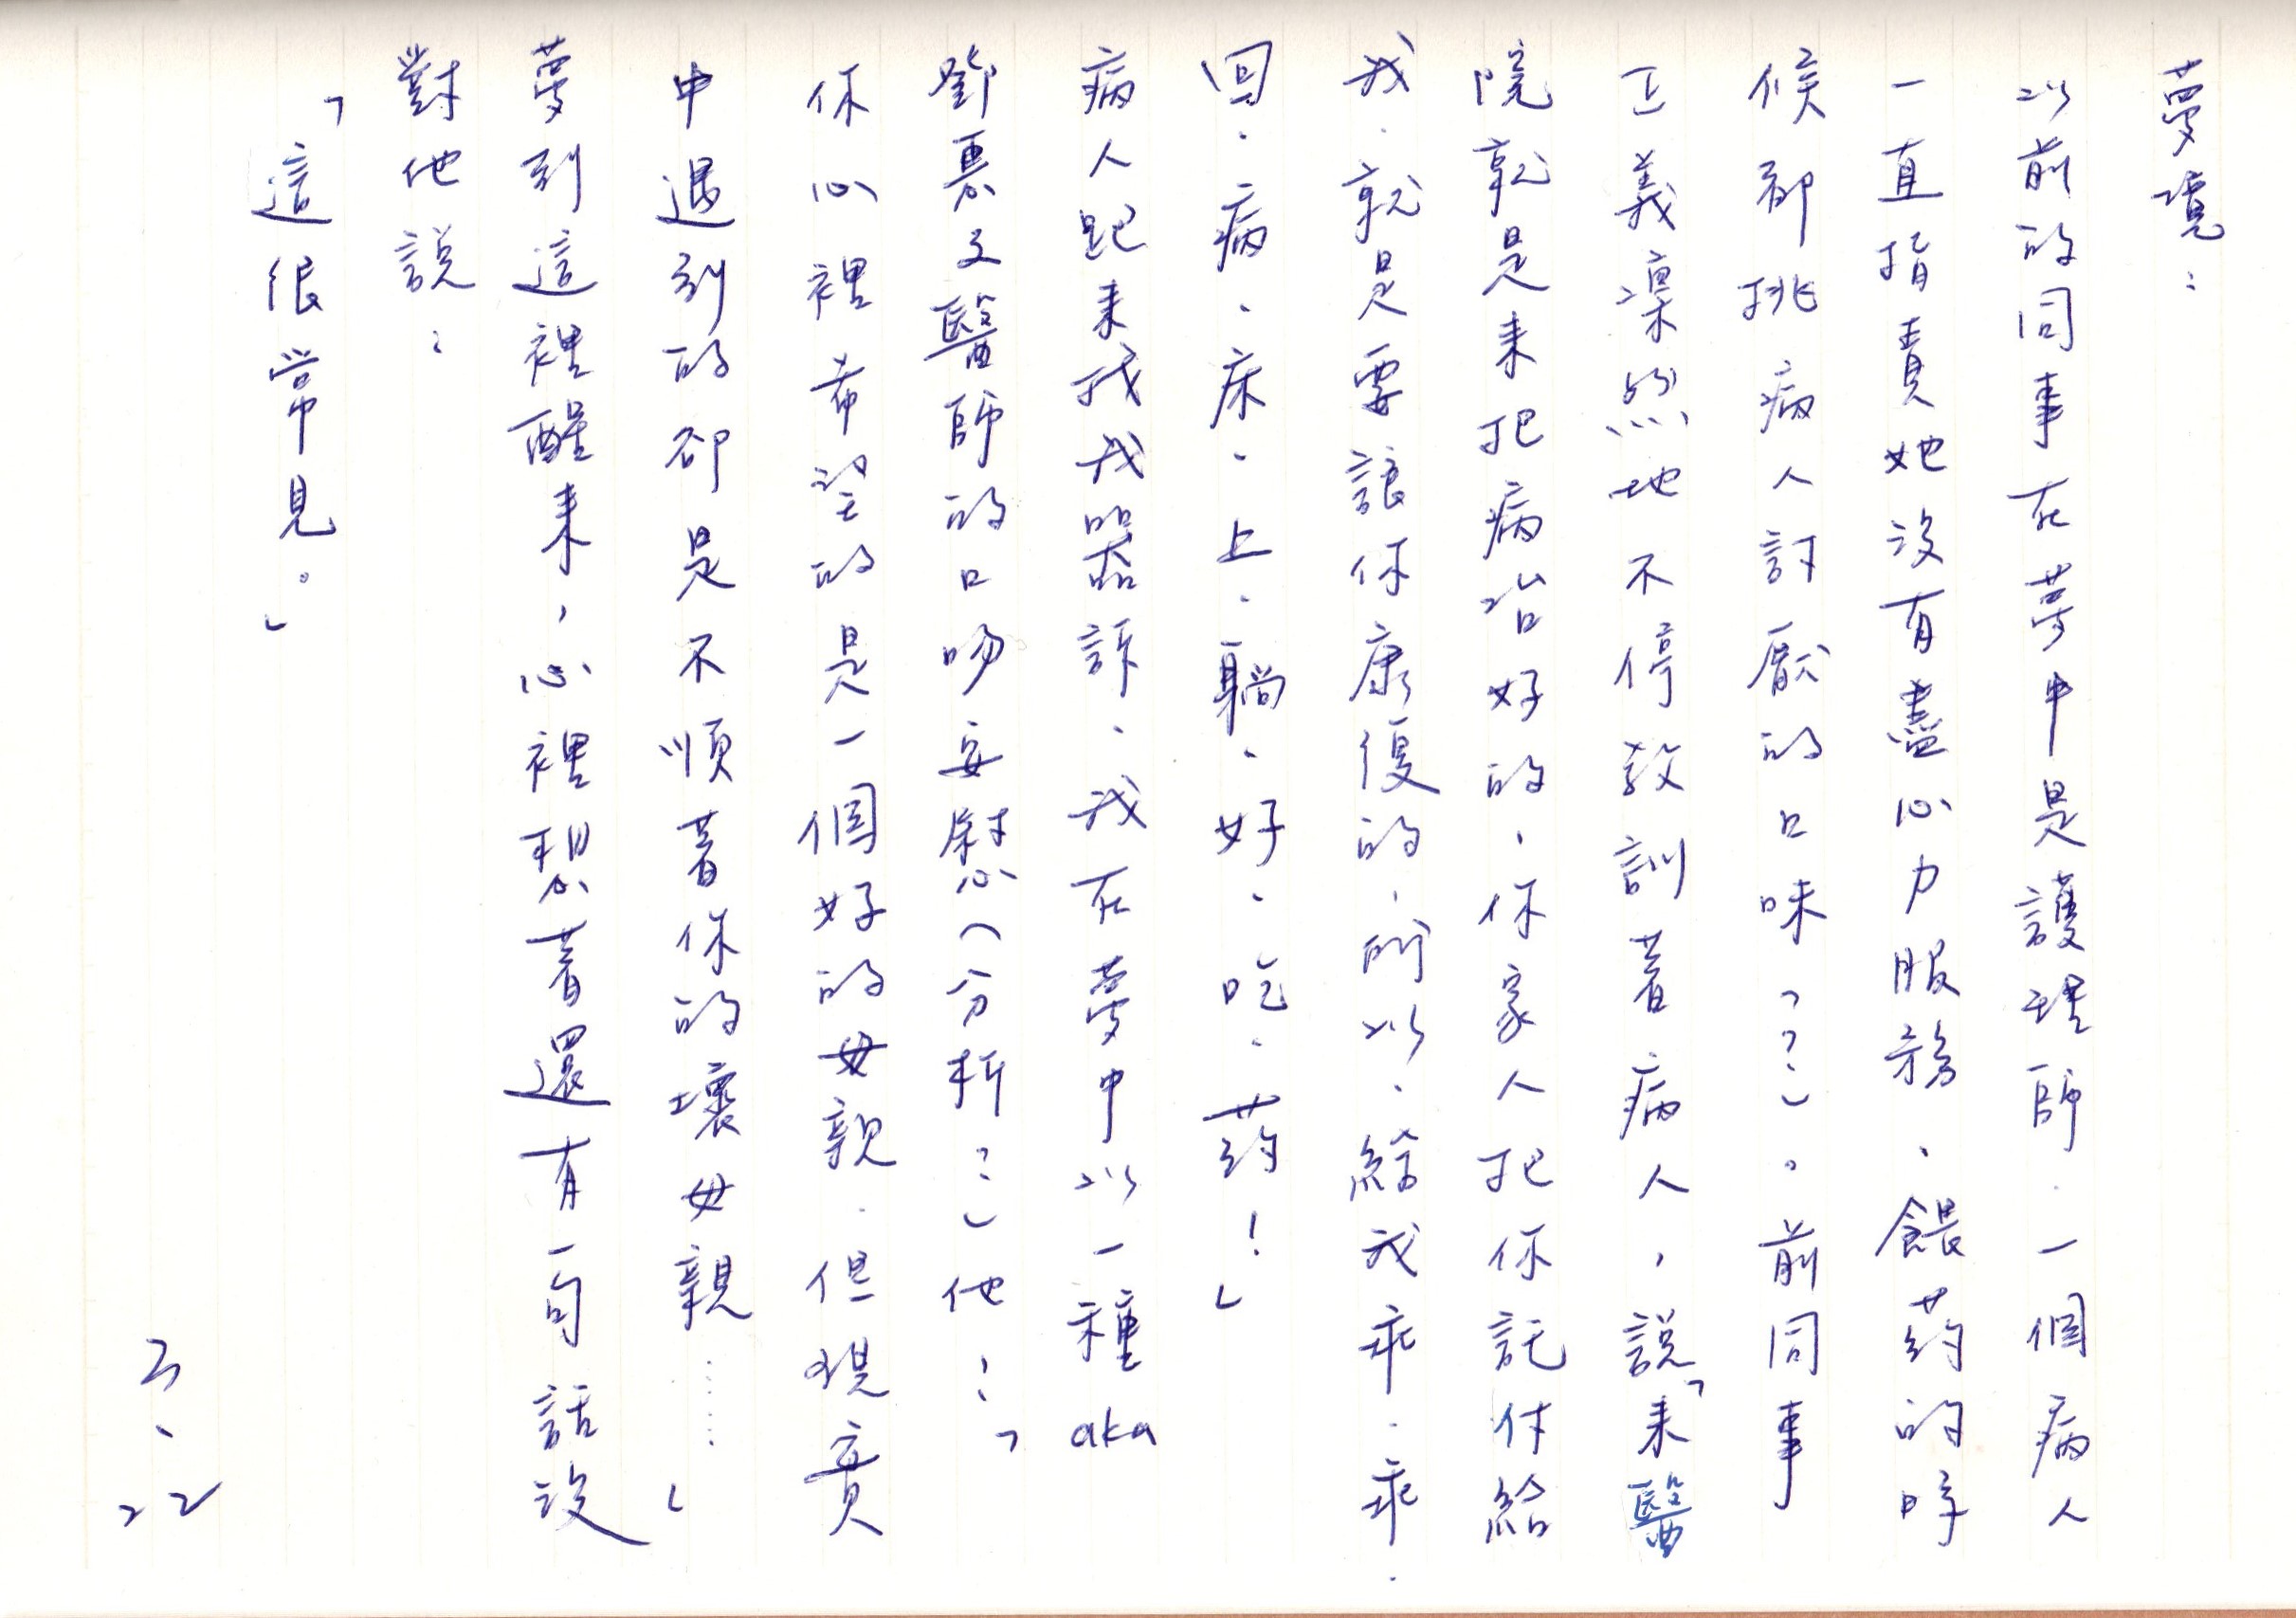 夢境：
以前的同事在夢中是護理師.一個病人
一直指責她沒有盡心力服務、餵葯的時
候都挑病人討厭的口味（？）。前同事
正義凜然地不停教訓著病人，說「來醫
院就是來把病治好的，你家人把你託付給
我.就是要讓你康復的，所以.給我乖.乖.
回.病.床.上.躺.好.吃.葯！」
病人跑來找我哭訴、我在夢中以一種aka
鄧惠文醫師的口吻安慰（分析？）他：「
你心裡希望的是一個好的母親.但現實
中遇到的卻是不順著你的壞母親……」
夢到這裡醒來，心裡想著還有一句話沒
對他說：
「這很常見。」
3、22